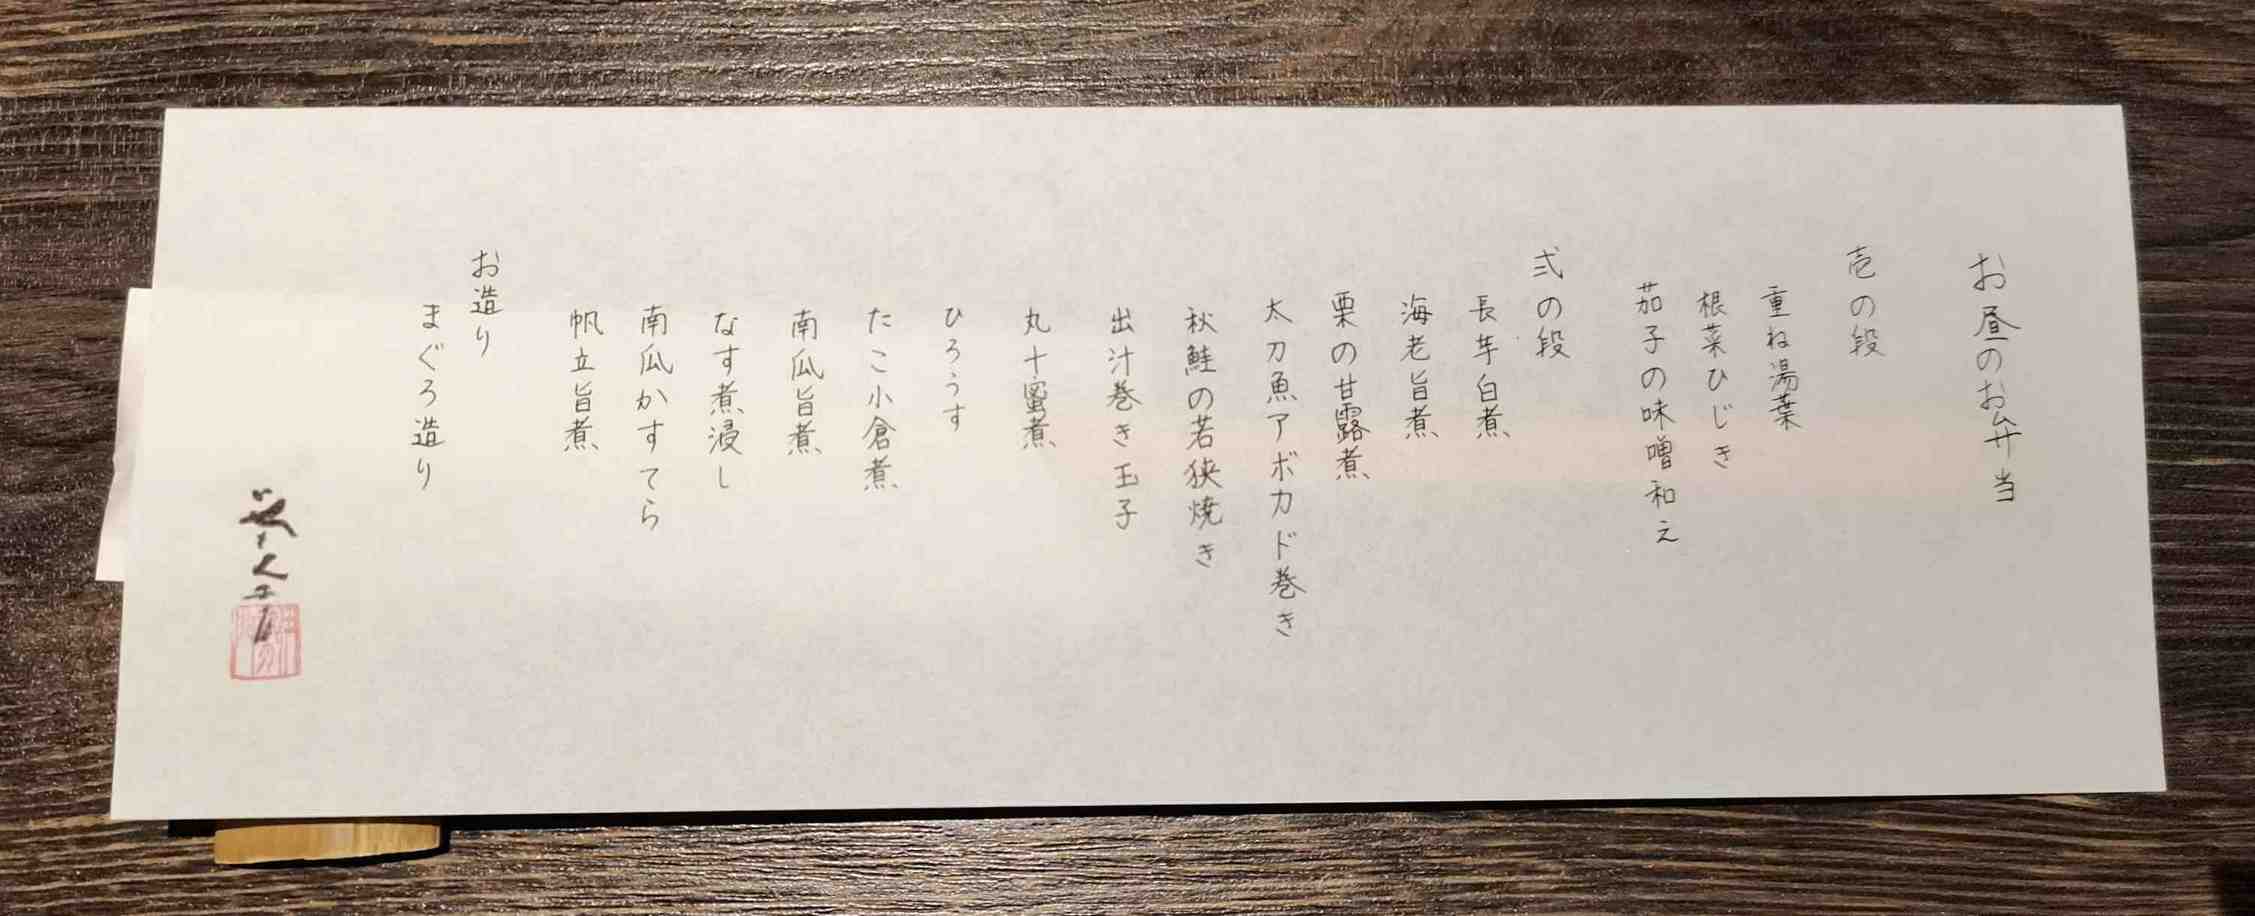 お昼のお弁当
壱の段
重ね湯葉
根菜ひじき
茄子の味噌和え
弐の段
長芋白煮
海老旨煮
栗の甘露煮
太刀魚アボカド巻き
秋鮭の若狭焼き
出汁巻き玉子
丸十蜜煮
ひろうす
たこ小倉煮
南瓜旨煮
なす煮浸し
南瓜かすてら
帆立旨煮
お造り
まぐろ造り